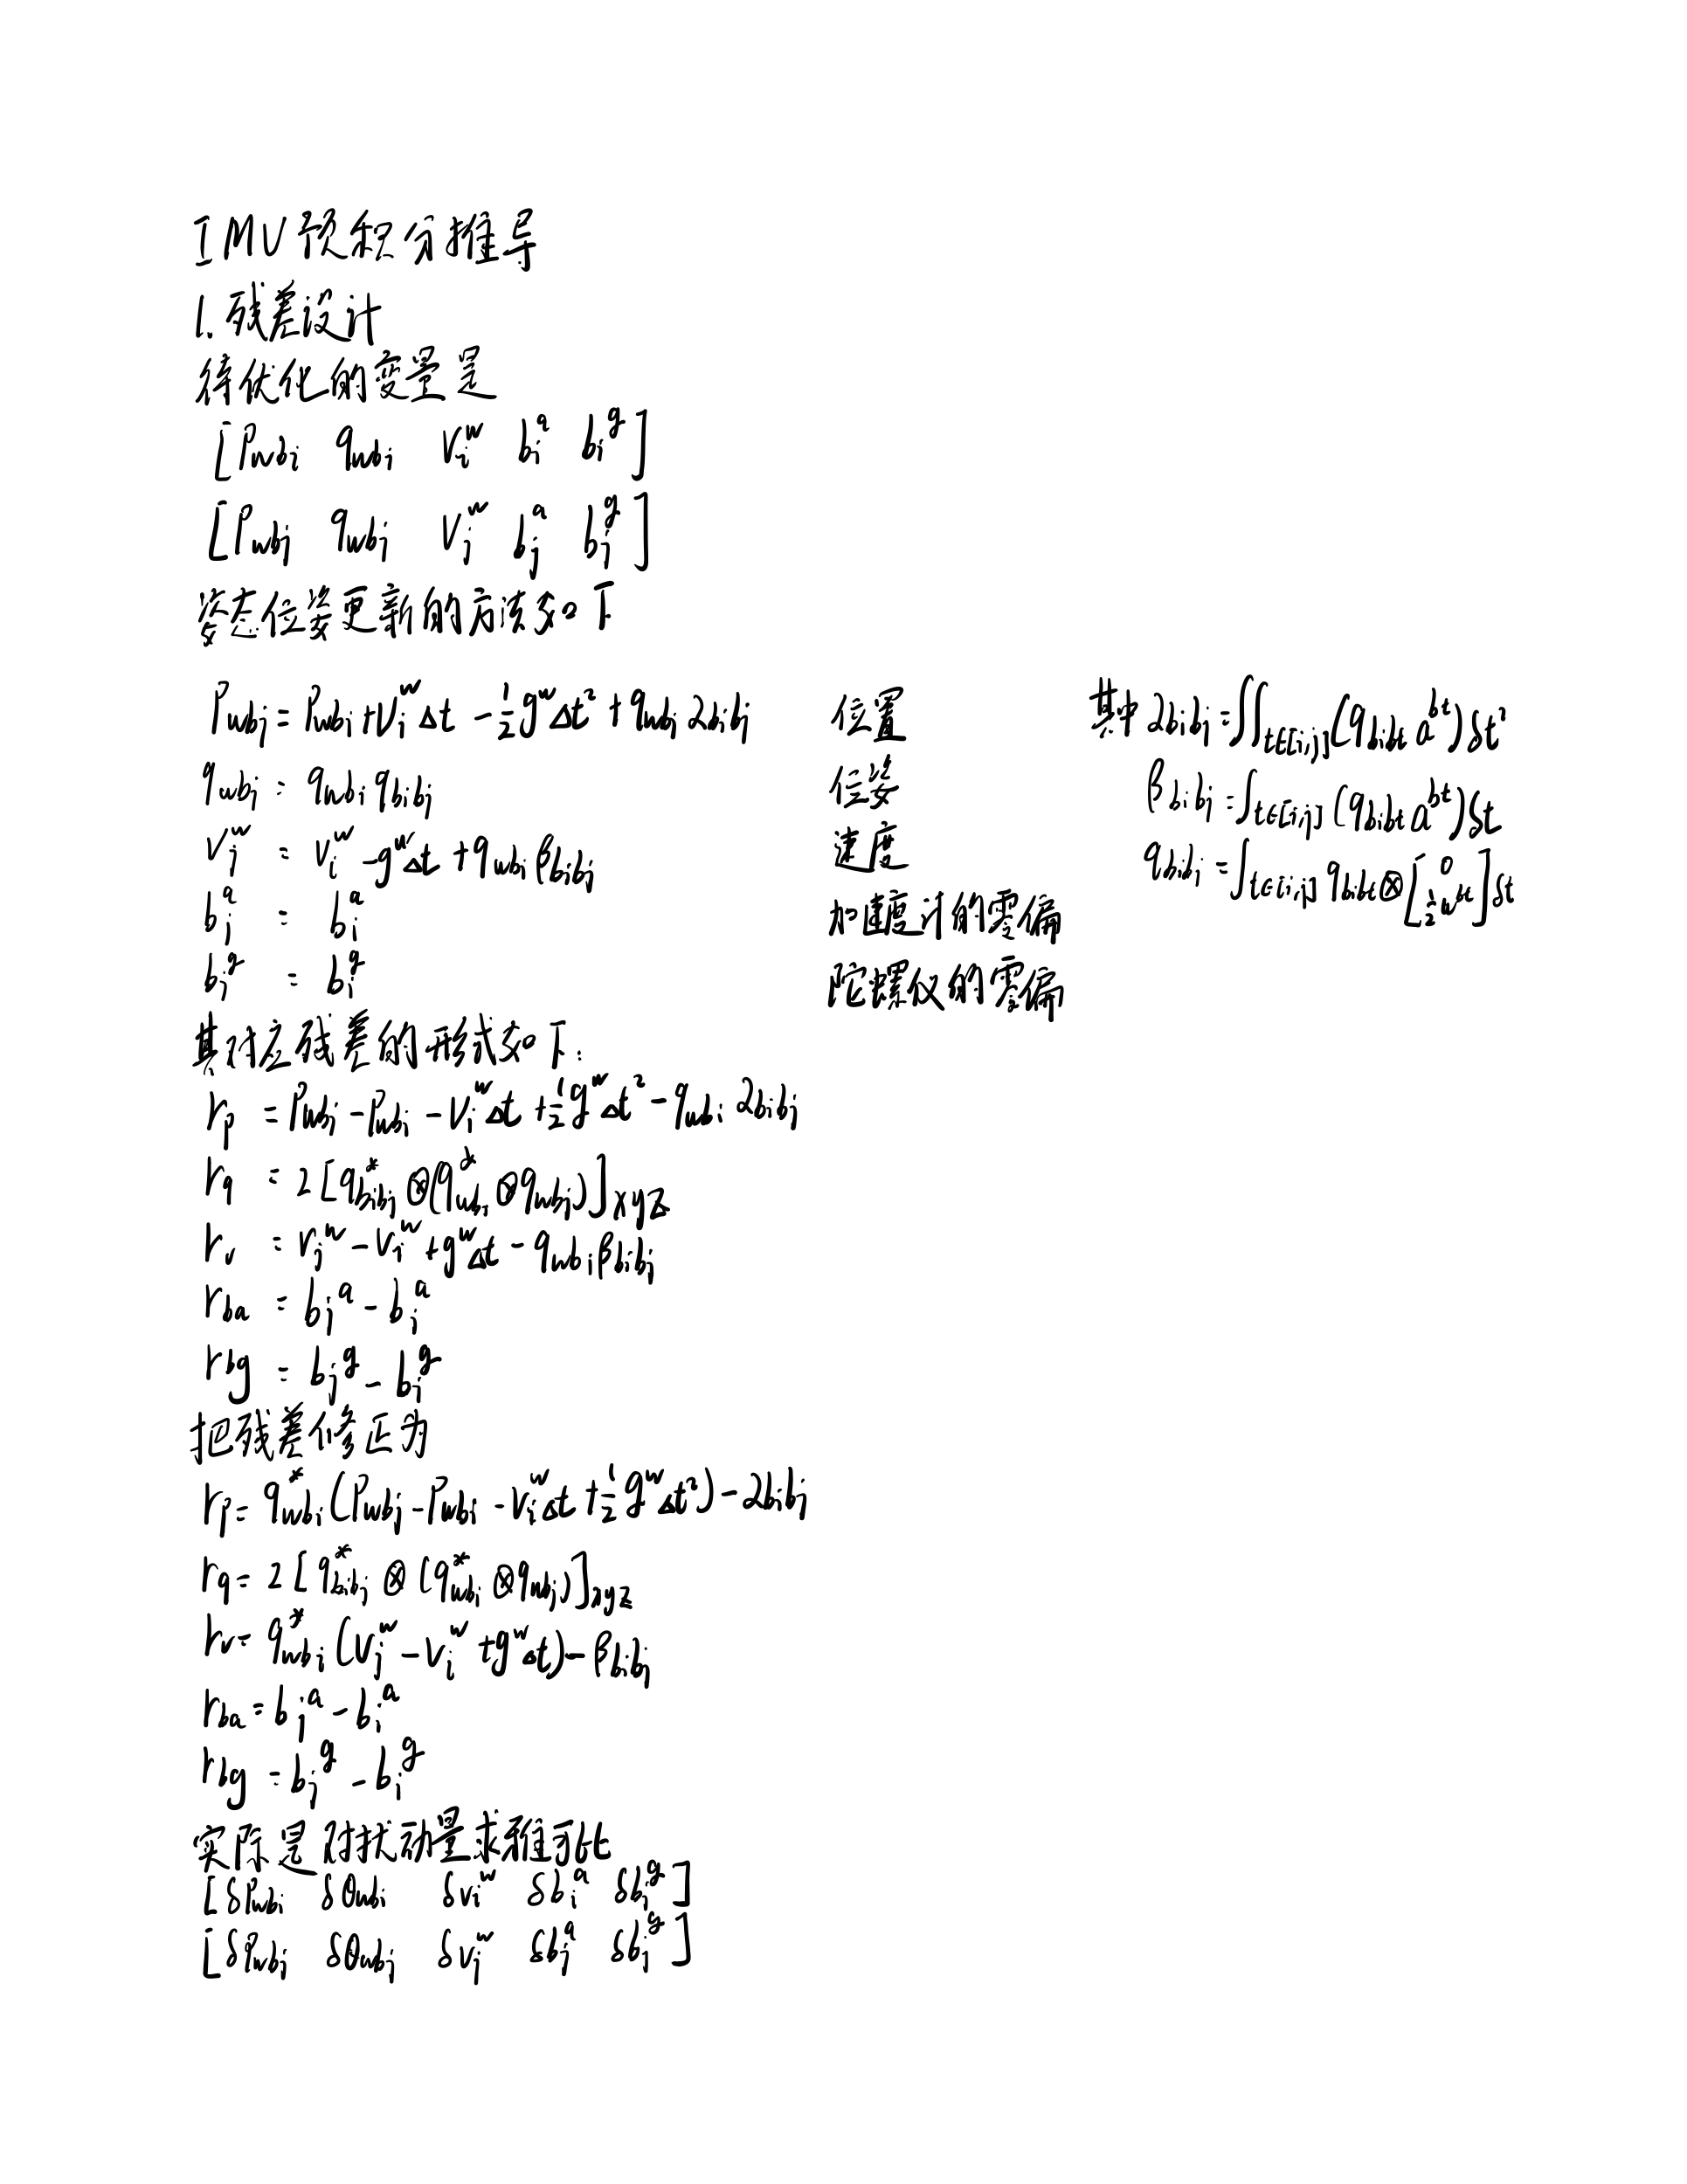 IMU预积分推导
1. 残差设计
待优化的变量是
[P_{wb_i} q_{wb_i} v_i^w b_i^a b_i^g]
[P_{wb_j} q_{wb_j} v_j^w b_j^a b_j^g]
姿态位姿更新的方法如下
P_{wb_j} = P_{wb_i} + v_i^w Δt - \frac{1}{2} g^w Δt^2 + q_{wb_i} α_{b_i b_j} 位置 其中 α_{b_i b_j} = ∬_{t∈[i,j]} (q_{b_i b_t} a^{b_t}) δt^2
q_{wb_j} = q_{wb_i} q_{b_i b_j} 位姿 β_{b_i b_j} = ∫_{t∈[i,j]} (q_{b_i b_t} a^{b_t}) δt
v_j^w = v_i^w - g^w Δt + q_{wb_i} β_{b_i b_j} 速度 q_{b_i b_j} = ∫_{t∈[i,j]} q_{b_i b_t} ⊗ [0 \frac{1}{2} w^{b_t}] δt
b_j^a = b_i^a 加速度计的零偏
b_j^g = b_i^g 陀螺仪的零偏
其对应残差的形式如下:
r_p = P_{wb_j} - P_{wb_i} - v_i^w Δt + \frac{1}{2} g^w Δt^2 - q_{wb_i} α_{b_i b_j}
r_q = 2[q_{b_i b_j}^* ⊗ (q_{wb_i}^* ⊗ q_{wb_j})]_{xyz}
r_v = v_j^w - v_i^w + g^w Δt - q_{wb_i} β_{b_i b_j}
r_{ba} = b_j^a - b_i^a
r_{bg} = b_j^g - b_i^g
把残差修正为
r_p = q_{wb_i}^* (P_{wb_j} - P_{wb_i} - v_i^w Δt + \frac{1}{2} g^w Δt^2) - α_{b_i b_j}
r_q = 2[q_{b_i b_j}^* ⊗ (q_{wb_i}^* ⊗ q_{wb_j})]_{xyz}
r_v = q_{wb_i}^* (v_j^w - v_i^w + g^w Δt) - β_{b_i b_j}
r_{ba} = b_j^a - b_i^a
r_{bg} = b_j^g - b_i^g
实际是对扰动量求雅可比
[δP_{wb_i} δθ_{wb_i} δv_i^w δb_i^a δb_i^g]
[δP_{wb_j} δθ_{wb_j} δv_j^w δb_j^a δb_j^g]